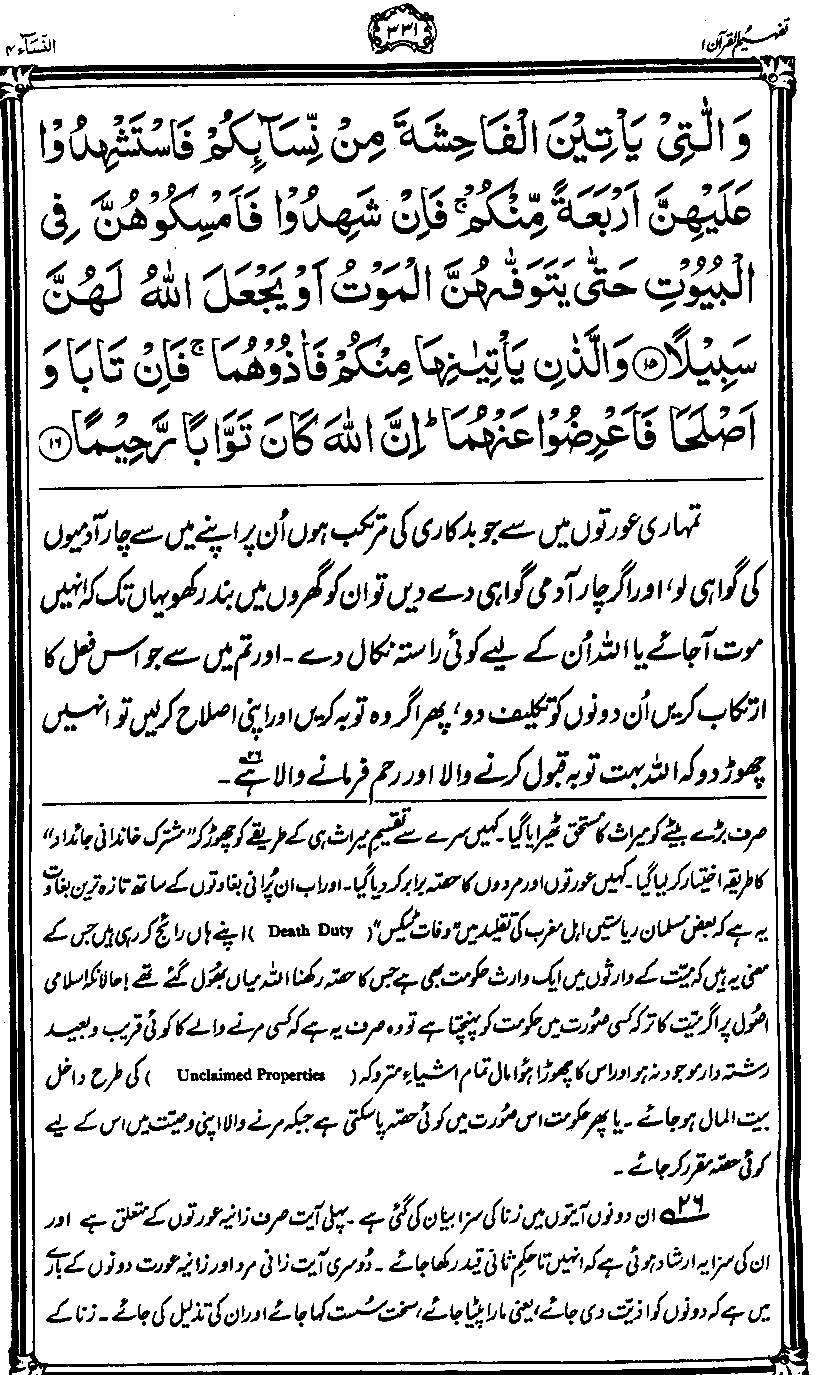 تفہیم القرآن ۱
۳۳۱
النسآء ۴
وَالّٰتِیْ یَاْتِیْنَ الْفَاحِشَةَ مِنْ نِّسَآىِٕكُمْ فَاسْتَشْهِدُوْا
عَلَیْهِنَّ اَرْبَعَةً مِّنْكُمْ ۚ فَاِنْ شَهِدُوْا فَاَمْسِكُوْهُنَّ فِی
الْبُیُوْتِ حَتّٰی یَتَوَفّٰىهُنَّ الْمَوْتُ اَوْ یَجْعَلَ اللهُ لَهُنَّ
سَبِیْلًا ﴿۱۵﴾ وَالَّذٰنِ یَاْتِیٰنِهَا مِنْكُمْ فَاٰذُوْهُمَا ۚ فَاِنْ تَابَا وَ
اَصْلَحَا فَاَعْرِضُوْا عَنْهُمَا ؕ اِنَّ اللهَ كَانَ تَوَّابًا رَّحِیْمًا ﴿۱۶﴾
تمہاری عورتوں میں سے جو بدکاری کی مرتکب ہوں اُن پر اپنے میں سے چار آدمیوں
کی گواہی لو، اور اگر چار آدمی گواہی دے دیں تو ان کو گھروں میں بند رکھو یہاں تک کہ انہیں
موت آجائے یا اللہ اُن کے لیے کوئی راستہ نکال دے۔ اور تم میں سے جو اس فعل کا
ارتکاب کریں اُن دونوں کو تکلیف دو، پھر اگر وہ توبہ کریں اور اپنی اصلاح کرلیں تو انہیں
چھوڑ دو کہ اللہ بہت توبہ قبول کرنے والا اور رحم فرمانے والا ہے۲۶۔
صرف بڑے بیٹے کو میراث کا مستحق ٹھیرایا گیا۔ کہیں سرے سے تقسیمِ میراث ہی کے طریقے کو چھوڑ کر "مشترک خاندانی جائداد"
کا طریقہ اختیار کرلیا گیا۔ کہیں عورتوں اور مردوں کا حصّہ برابر کردیا گیا۔ اور اب ان پُرانی بغاوتوں کے ساتھ تازہ ترین بغاوت
یہ ہے کہ بعض مسلمان ریاستیں اہلِ مغرب کی تقلید میں "وفات ٹیکس" (Death Duty) اپنے ہاں رائج کر رہی ہیں جس کے
معنی یہ ہیں کہ میّت کے وارثوں میں ایک وارث حکومت بھی ہے جس کا حصّہ رکھنا اللہ میاں بھُول گئے تھے! حالانکہ اسلامی
اصُول پر اگر میّت کا ترکہ کسی صُورت میں حکومت کو پہنچتا ہے تو وہ صرف یہ ہے کہ کسی مرنے والے کا کوئی قریب و بعید
رشتہ دار موجود نہ ہو اور اس کا چھوڑا ہُوا مال تمام اشیاءِ متروکہ (Unclaimed Properties) کی طرح داخل
بیت المال ہو جائے۔ یا پھر حکومت اس صُورت میں کوئی حصّہ پاسکتی ہے جبکہ مرنے والا اپنی وصیّت میں اس کے لیے
کوئی حصّہ مقرر کر جائے۔
۲۶ ان دونوں آیتوں میں زنا کی سزا بیان کی گئی ہے۔ پہلی آیت صرف زانیہ عورتوں کے متعلق ہے اور
ان کی سزا یہ ارشاد ہوئی ہے کہ انہیں تا حکمِ ثانی قید رکھا جائے۔ دُوسری آیت زانی مرد اور زانیہ عورت دونوں کے بارے
میں ہے کہ دونوں کو اذیّت دی جائے، یعنی مارا پیٹا جائے، سخت سُست کہا جائے اور ان کی تذلیل کی جائے۔ زنا کے